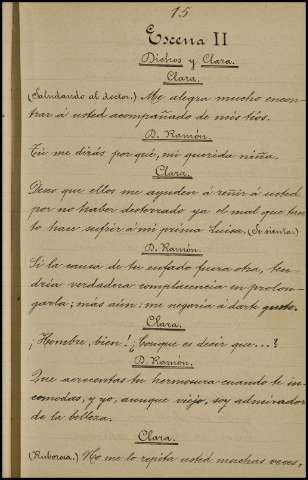 15
Escena II
Dichos y Clara.
Clara.
(Saludando al doctor.) Me alegra mucho encon-
trar á usted acompañado de mis tíos.
D. Ramón.
Tú me dirás por qué, mi querida niña.
Clara.
Para que ellos me ayuden á reñir á usted
por no haber desterrado ya el mal que tan-
to hace sufrir á mi prima Luisa. (Se sientan.)
D. Ramón.
Si la causa de tu enfado fuera otra, ten-
dría verdadera complacencia en prolon-
garla; más aún: me negaría á darte gusto.
Clara.
¡Hombre, bien! ¿Conque es decir que...?
D. Ramón.
Que acrecentas tu hermosura cuando te in-
comodas, y yo, aunque viejo, soy admirador
de la belleza.
Clara.
(Ruborosa.) No me lo repita usted muchas veces,